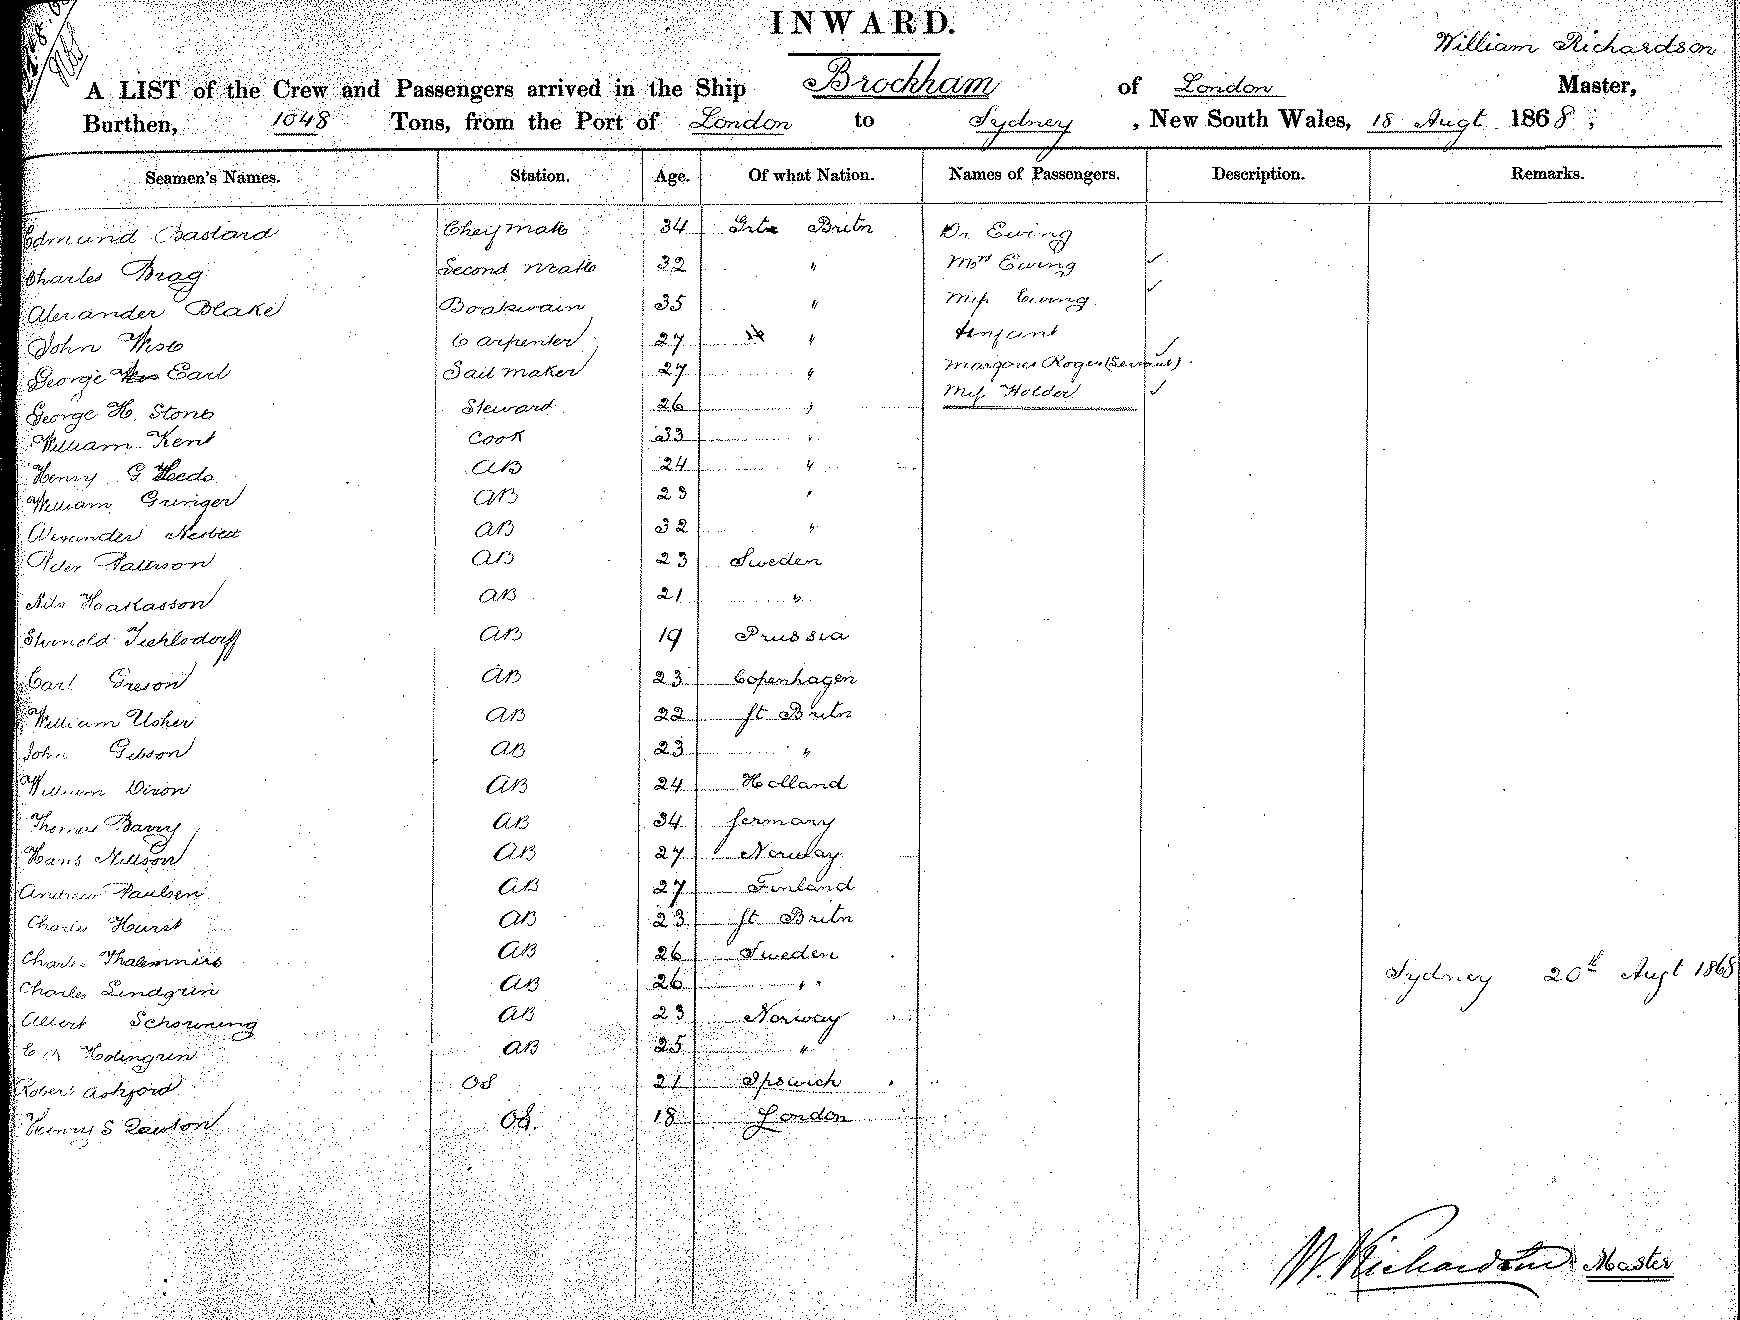 INWARD.
William Richardson
A LIST of the Crew and Passengers arrived in the Ship Brockham of London Master,
Burthen, 1048 Tons, from the Port of London to Sydney, New South Wales, 18 Augt 1868;
Seamen's Names. Station. Age. Of what Nation. Names of Passengers. Description. Remarks.
Edmund Bastard Cheif Mate 34 Grt Britn Dr Ewing
Charles Brag Second Mate 32 " Mrs Ewing ✓
Alexander Blake Boatswain 35 " Miss Ewing ✓
John West Carpenter 27 " Infant
George Earl Sail Maker 27 " Margaret Roger (Servant) ✓
George H. Stone Steward 26 " Miss Holder ✓
William Kent Cook 33 "
Henry G AB 24 "
William Gringer AB 23 "
Alexander Nesbett AB 32 "
Peter Patterson AB 23 Sweden
Nils Haakasson AB 21 "
AB 19 Prussia
Carl AB 23 Copenhagen
William Usher AB 22 Gt Britn
John Gibson AB 23 "
William Dixon AB 24 Holland
Thomas Barry AB 34 Germany
Hans Nillson AB 27 Norway
Andrew Paulsen AB 27 Finland
Charles Hurst AB 23 Gt Britn
Charles AB 26 Sweden
Charles Lindgrin AB 26 "
Sydney 20th Augt 1868
Albert Schowning AB 23 Norway
Holmgrin AB 25 "
Robert Ashford OS 21 Ipswich
Henry S OS. 18 London
W. Richardson Master